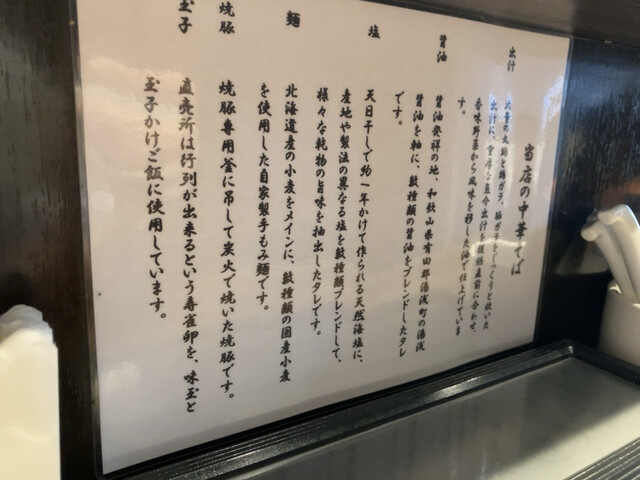 当店の中華そば
出汁
大量の丸鶏と鶏ガラ、豚ガラをじっくりと炊いた
出汁に、濃厚な魚介出汁を提供直前に合わせ、
香味野菜から風味を移した油で仕上げていま
す。
醤油
醤油発祥の地、和歌山県有田郡湯浅町の湯浅
醤油を軸に、数種類の醤油をブレンドしたタレ
です。
塩
天日干しで約一年かけて作られる天然海塩に、
産地や製法の異なる塩を数種類ブレンドして、
様々な乾物の旨味を抽出したタレです。
麺
北海道産の小麦をメインに、数種類の国産小麦
を使用した自家製手もみ麺です。
焼豚
焼豚専用釜に吊して炭火で焼いた焼豚です。
玉子
直売所は行列が出来るという寿雀卵を、味玉と
玉子かけご飯に使用しています。